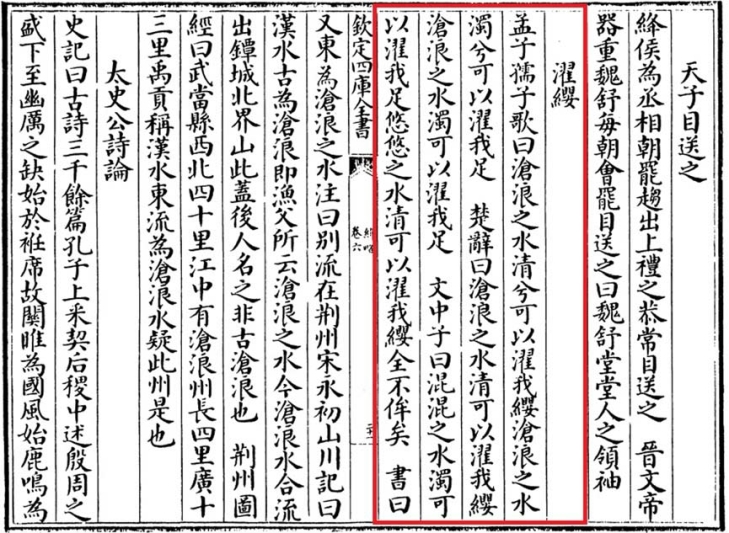 天子目送之
絳侯為丞相朝罷趨出上禮之恭常目送之 晉文帝
器重魏舒每朝會罷目送之曰魏舒堂堂人之領袖
濯纓
孟子孺子歌曰滄浪之水清兮可以濯我纓滄浪之水
濁兮可以濯我足 楚辭曰滄浪之水清可以濯我纓
滄浪之水濁可以濯我足 文中子曰混混之水濁可
以濯我足悠悠之水清可以濯我纓全不侔矣 書曰
欽定四庫全書
卷六
又東為滄浪之水注曰别流在荆州宋永初山川記曰
漢水古為滄浪即漁父所云滄浪之水今滄浪水合流
出鐔城北界山此蓋後人名之非古滄浪也 荆州圖
經曰武當縣西北四十里江中有滄浪州長四里廣十
三里禹貢稱漢水東流為滄浪水疑此州是也
太史公詩論
史記曰古詩三千餘篇孔子上采契后稷中述殷周之
盛下至幽厲之缺始於袵席故關雎為國風始鹿鳴為